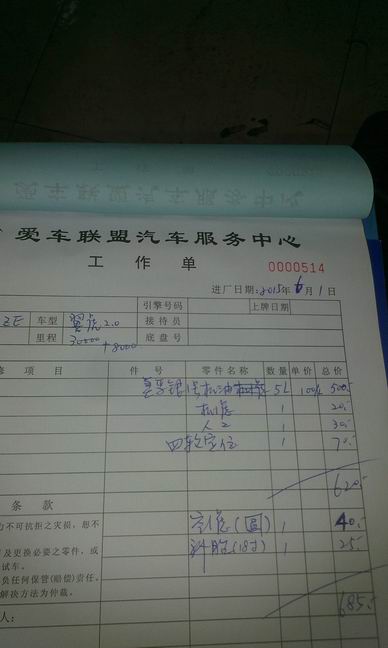 爱车联盟汽车服务中心
工 作 单
0000514
进厂日期:2015年6月1日
引擎号码 上牌日期
ZE 车型 翼虎2.0 接待员
里程 30000+8000 底盘号
修 项 目 件 号 零件名称 数量 单价 总价
5L 100/L 500.-
机滤 1 20.-
人工 1 30.-
四轮定位 1 70.-
620.-
条 款
力不可抗拒之灾损,恕不
空滤(圆) 1 40.-
及更换必要之零件,或
补胎(18寸) 1 25.-
试车。
负任何保管(赔偿)责任。
解决方法为仲裁。
人: 685.-